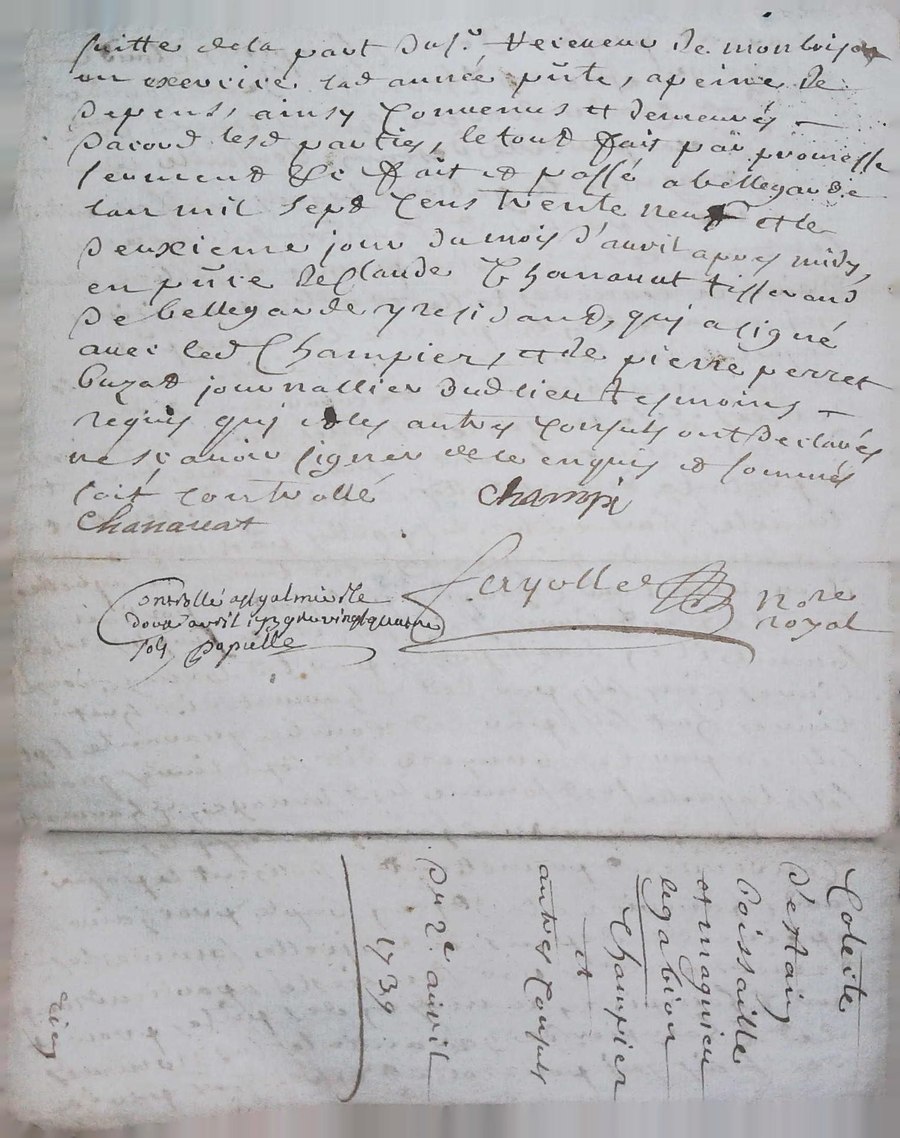 suitte de la part du sr. Receveur de monbrison
en exercice lad année pñte, a peine de
depens, ainsy convenus et demeurés —
dacord lesd parties, le tout fait par promesse
serment &c fait et passé a bellegarde
lan mil sept cens trente neuf et le
deuxieme jour du mois d'avril apres midy,
en pñce de Claude Chanavat tisserand
de bellegarde y residand, qui a signé
avec led Champier, et de pierre perret
buzat journallier dudlieu tesmoins —
requis qui et les autres consuls ont declarés
ne sçavoir signer de ce enquis et sommés
soit controllé Champi
Chanavat
Controllé a st galmier le
douze avril 1739
sols
nore
royal
Coleite
d'estaing
boissaille
et maguieu
legabion
Champier
et
autres consuls
du 2e. avril
1739